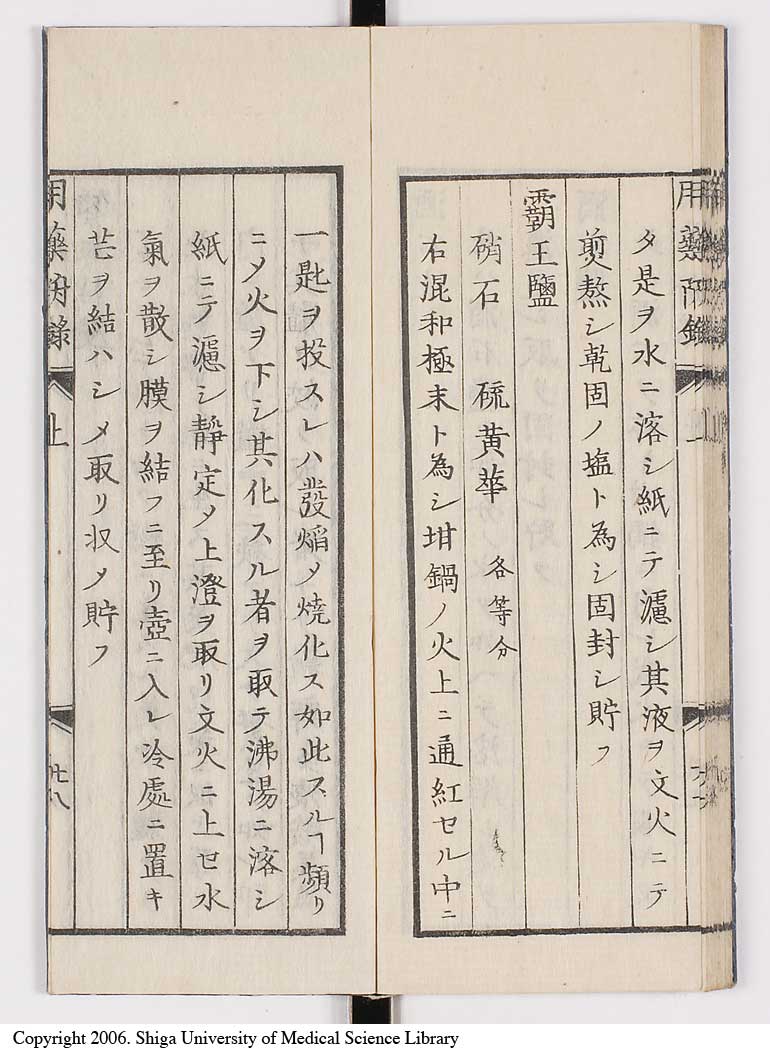 タ是ヲ水ニ溶シ紙ニテ濾シ其液ヲ文火ニテ
煎熬シ乾固ノ塩ト為シ固封シ貯フ
覇王鹽
硝石 硫黄華 各等分
右混和極末ト為シ坩鍋ノ火上ニ通紅セル中ニ
一匙ヲ投スレハ發焔メ焼化ス如此スルヿ頻リ
ニメ火ヲ下シ其化スル者ヲ取テ沸湯ニ溶シ
紙ニテ濾シ靜定メ上澄ヲ取リ文火ニ上セ水
氣ヲ散シ膜ヲ結フニ至リ壺ニ入レ冷處ニ置キ
芒ヲ結ハシメ取リ収メ貯フ
用藥 上 廿八
Copyright 2006. Shiga University of Medical Science Library